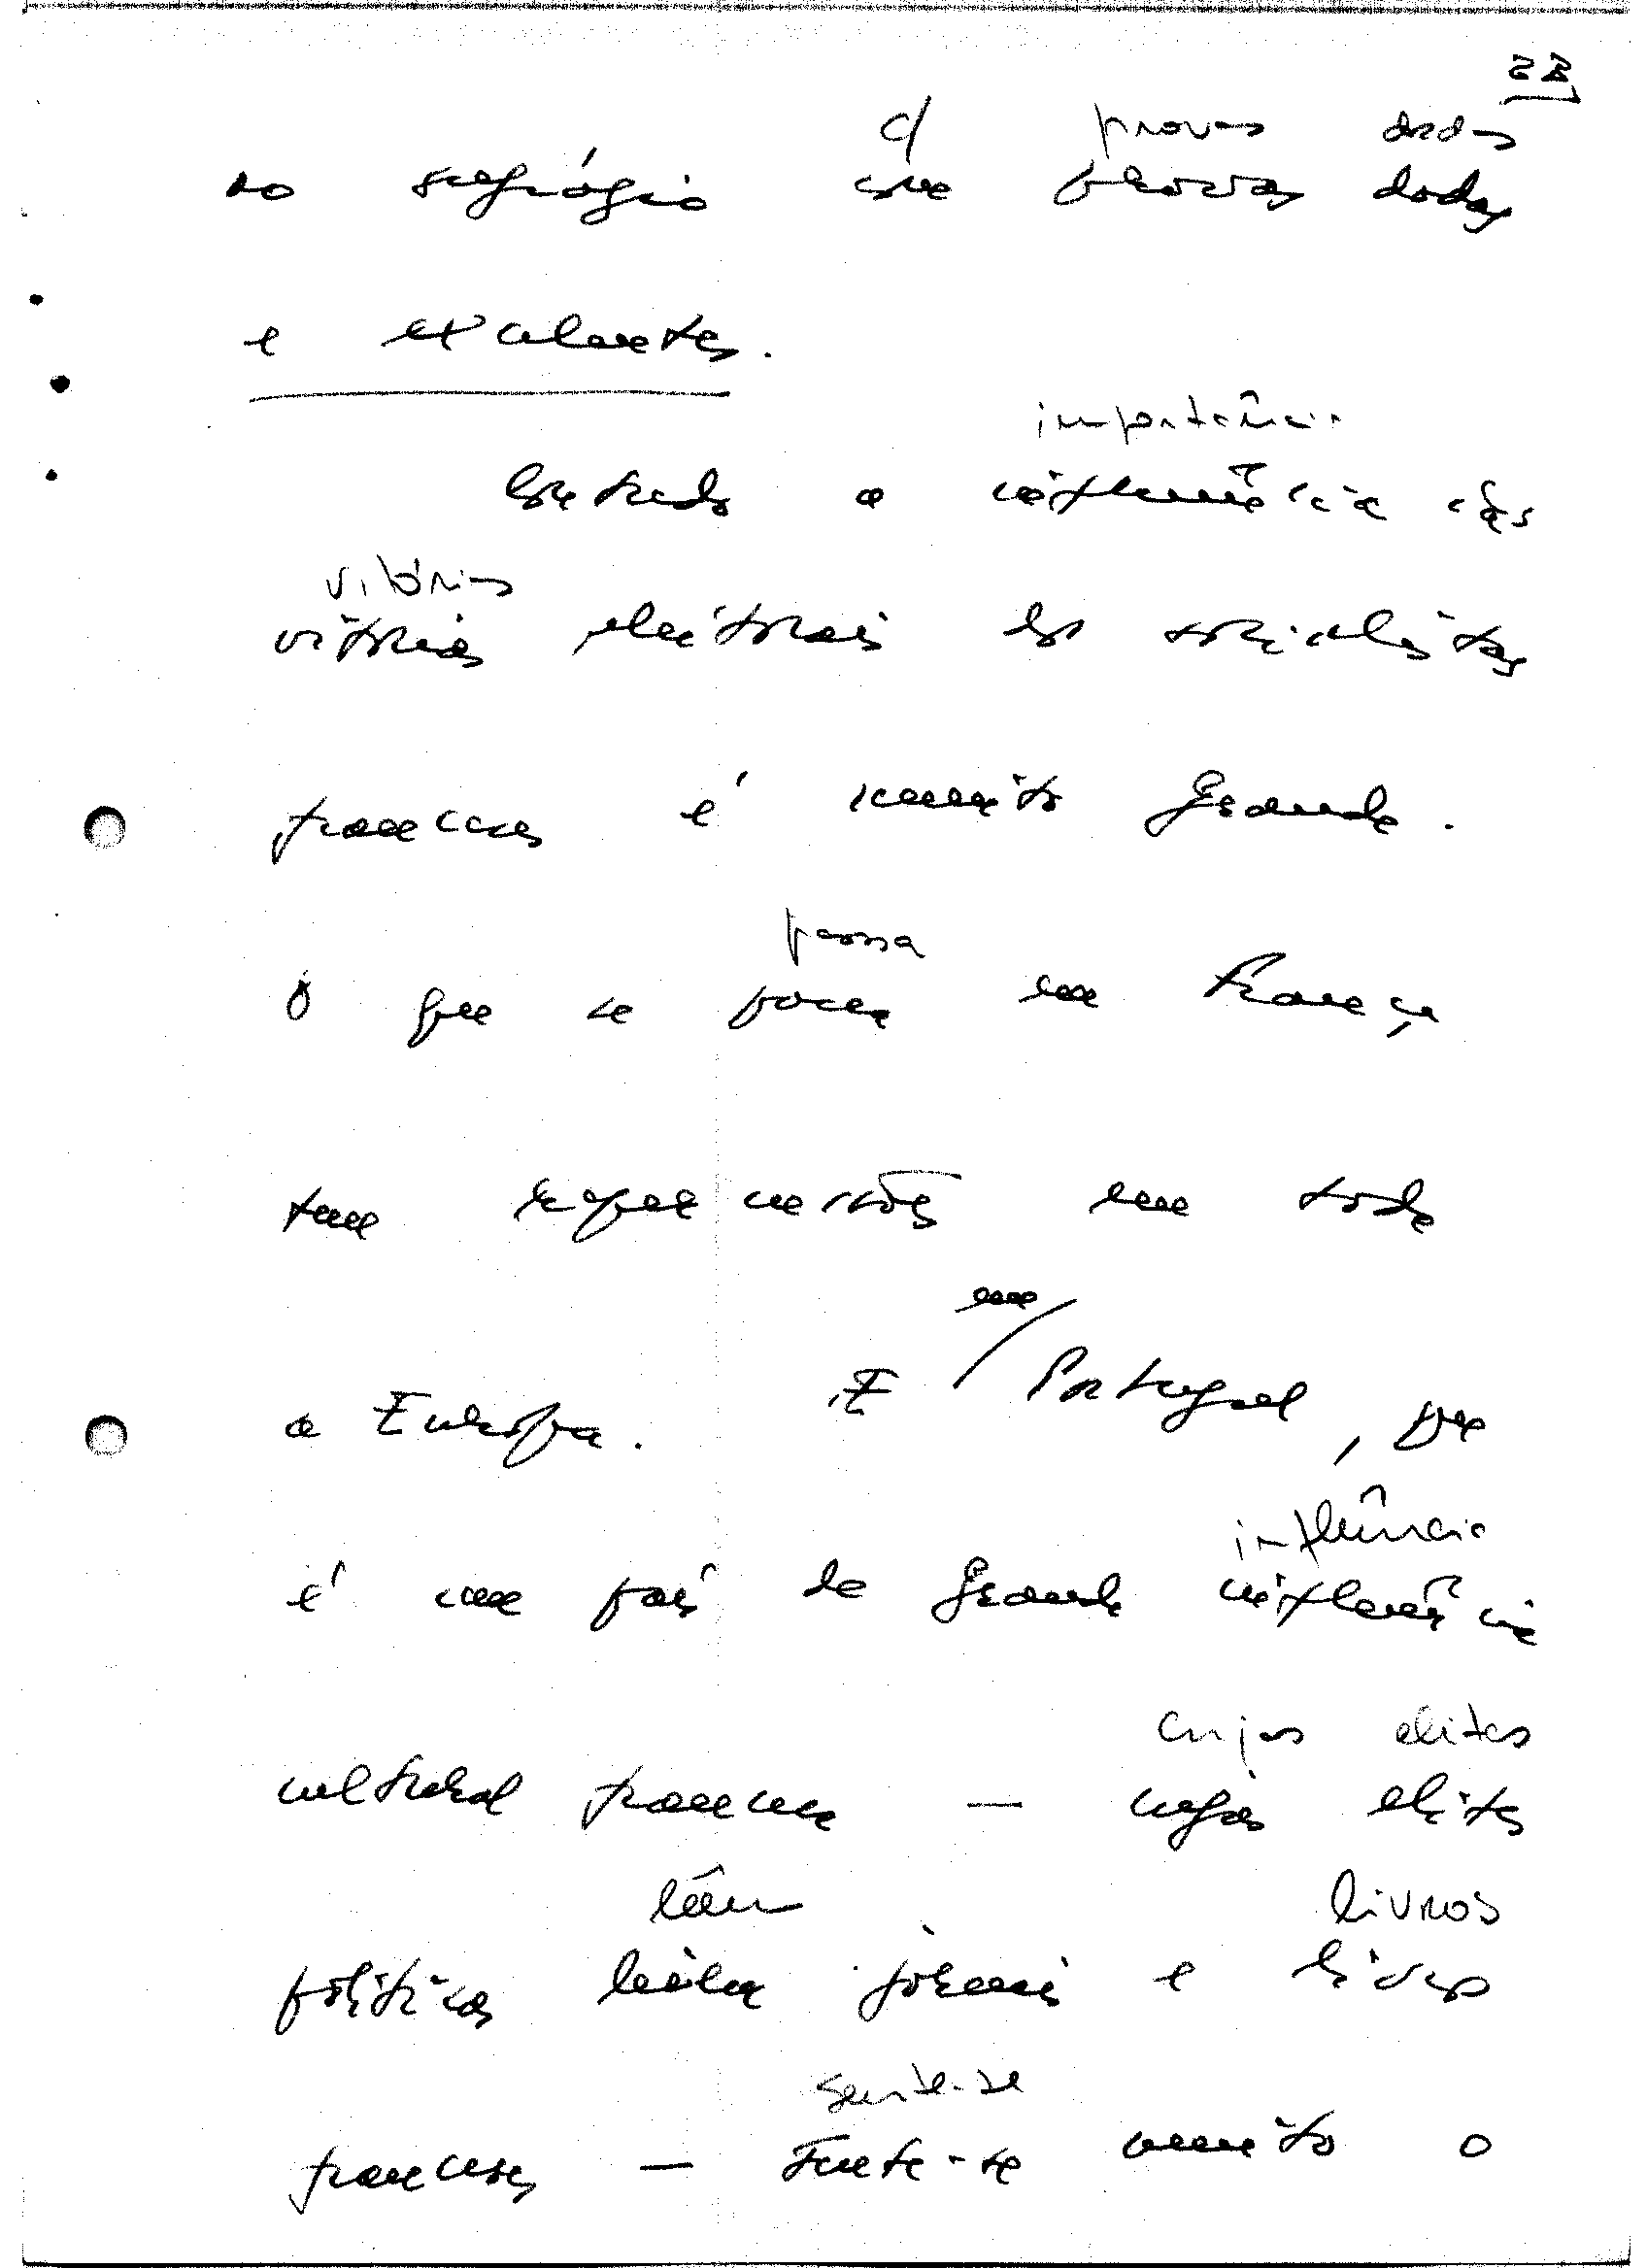 c/ provas dadas
ao sufrágio com provas dadas
e exaltantes.
importância
Contudo a influência das
vitórias
vitórias eleitorais dos socialistas
franceses é muito grande.
passa
O que se passa em França
tem repercussões em toda
a Europa. E em Portugal, que
influência
é um país de grande influência
cujas elites
cultural francesa — cujas elites
lêem livros
políticas lêem jornais e livros
sente-se
franceses — sente-se muito o